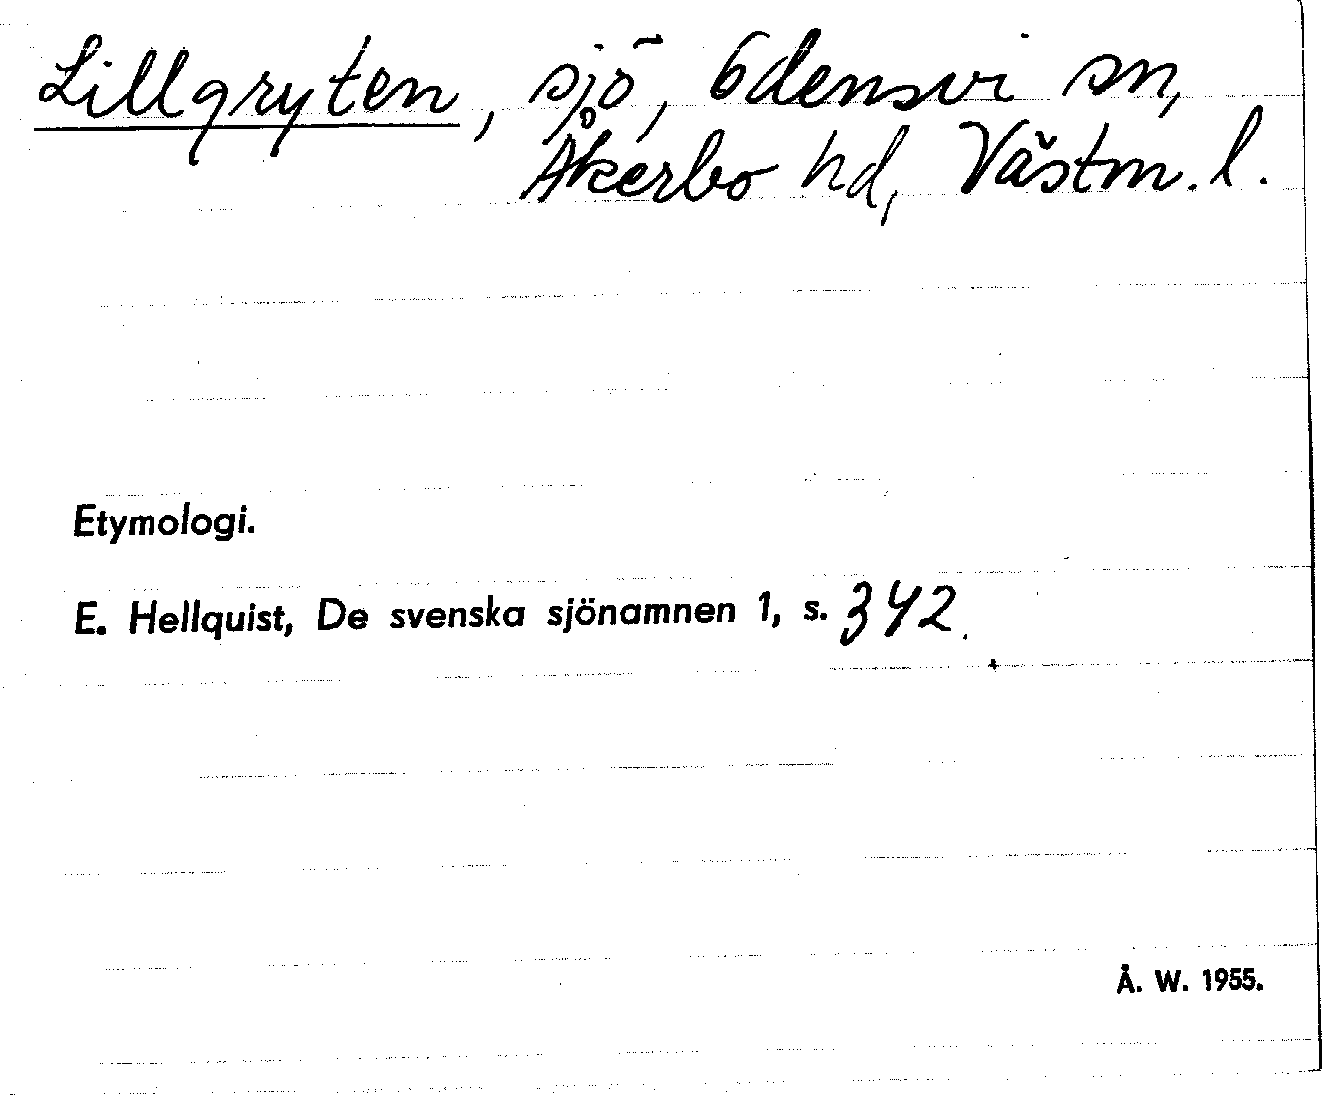 Lillgryten, sjö, Odensvi sn,
Åkerbo hd, Västm. l.
Etymologi.
E. Hellquist, De svenska sjönamnen 1, s. 342.
Å. W. 1955.